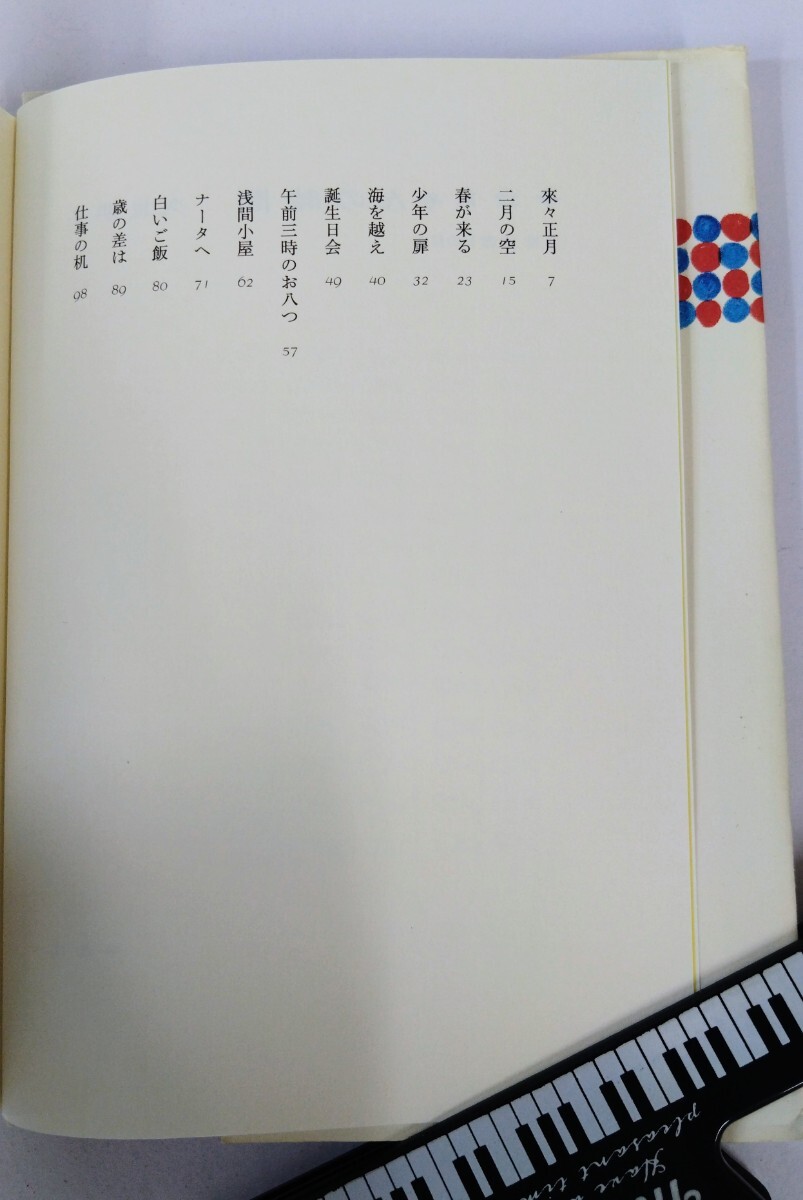 來々正月 7
二月の空 15
春が来る 23
少年の扉 32
海を越え 40
誕生日会 49
午前三時のお八つ 57
浅間小屋 62
ナータへ 71
白いご飯 80
歳の差は 89
仕事の机 98
Have
pleasant tim